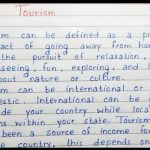 Tourism
m can be defined as a p
act of going away from hom
pursuit of relaxation,
seeing fun, exploring, and
out nature or culture.
m can be international or
estic. International can be
de your country while local
s within your state. Tourism
been a source of income for
country, this depends on